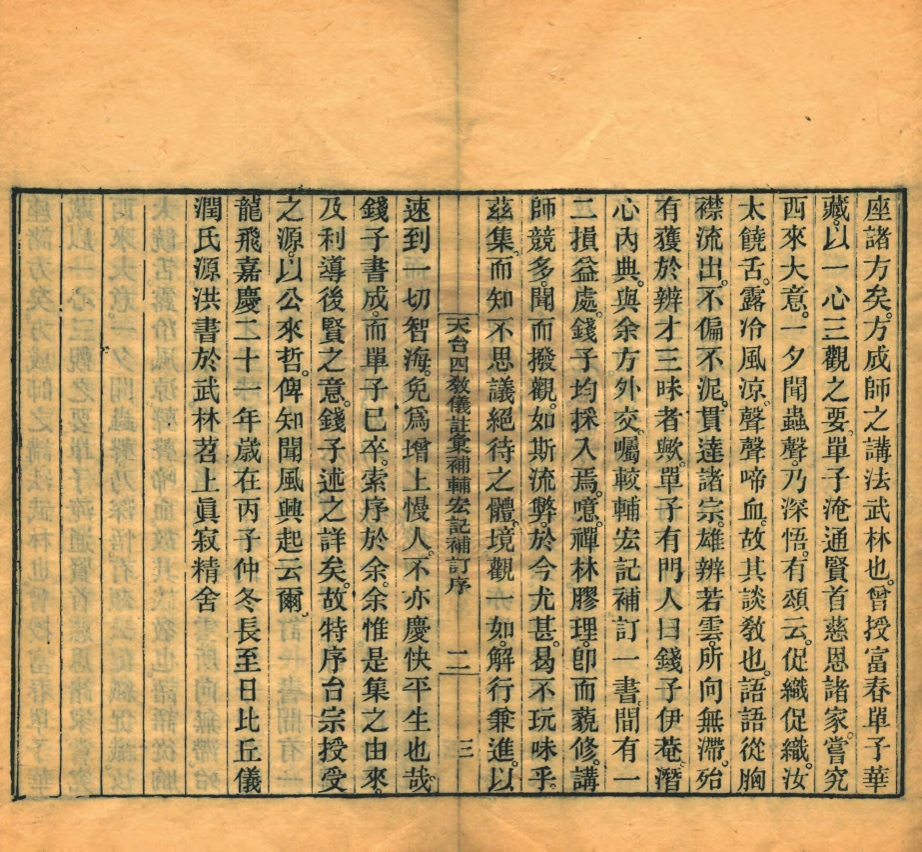 座諸方矣。方成師之講法武林也。曾授富春單子華
藏。以一心三觀之要。單子淹通賢首慈恩諸家。嘗究
西來大意。一夕聞蟲聲。乃深悟。有頌云。促織促織。汝
太饒舌。露冷風涼。聲聲啼血。故其談敎也。語語從胸
襟流出。不偏不泥。貫達諸宗。雄辨若雲。所向無滯。殆
有獲於辨才三昧者歟。單子有門人曰錢子伊菴。潛
心內典。與余方外交。囑較輔宏記補訂一書。間有一
二損益處。錢子均採入焉。噫。禪林膠理。卽而藐修。講
師競多。聞而撥觀。如斯流弊。於今尤甚。曷不玩味乎。
茲集。而知不思議絕待之體。境觀一如。解行兼進。以
天台四敎儀註彙補輔宏記補訂序 二 三
速到一切智海。免爲增上慢人。不亦慶快平生也哉。
錢子書成。而單子已卒。索序於余。余惟是集之由來。
及利導後賢之意。錢子述之詳矣。故特序台宗授受
之源。以公來哲。俾知聞風興起云爾。
龍飛嘉慶二十一年歲在丙子仲冬長至日比丘儀
潤氏源洪書於武林苕上眞寂精舍